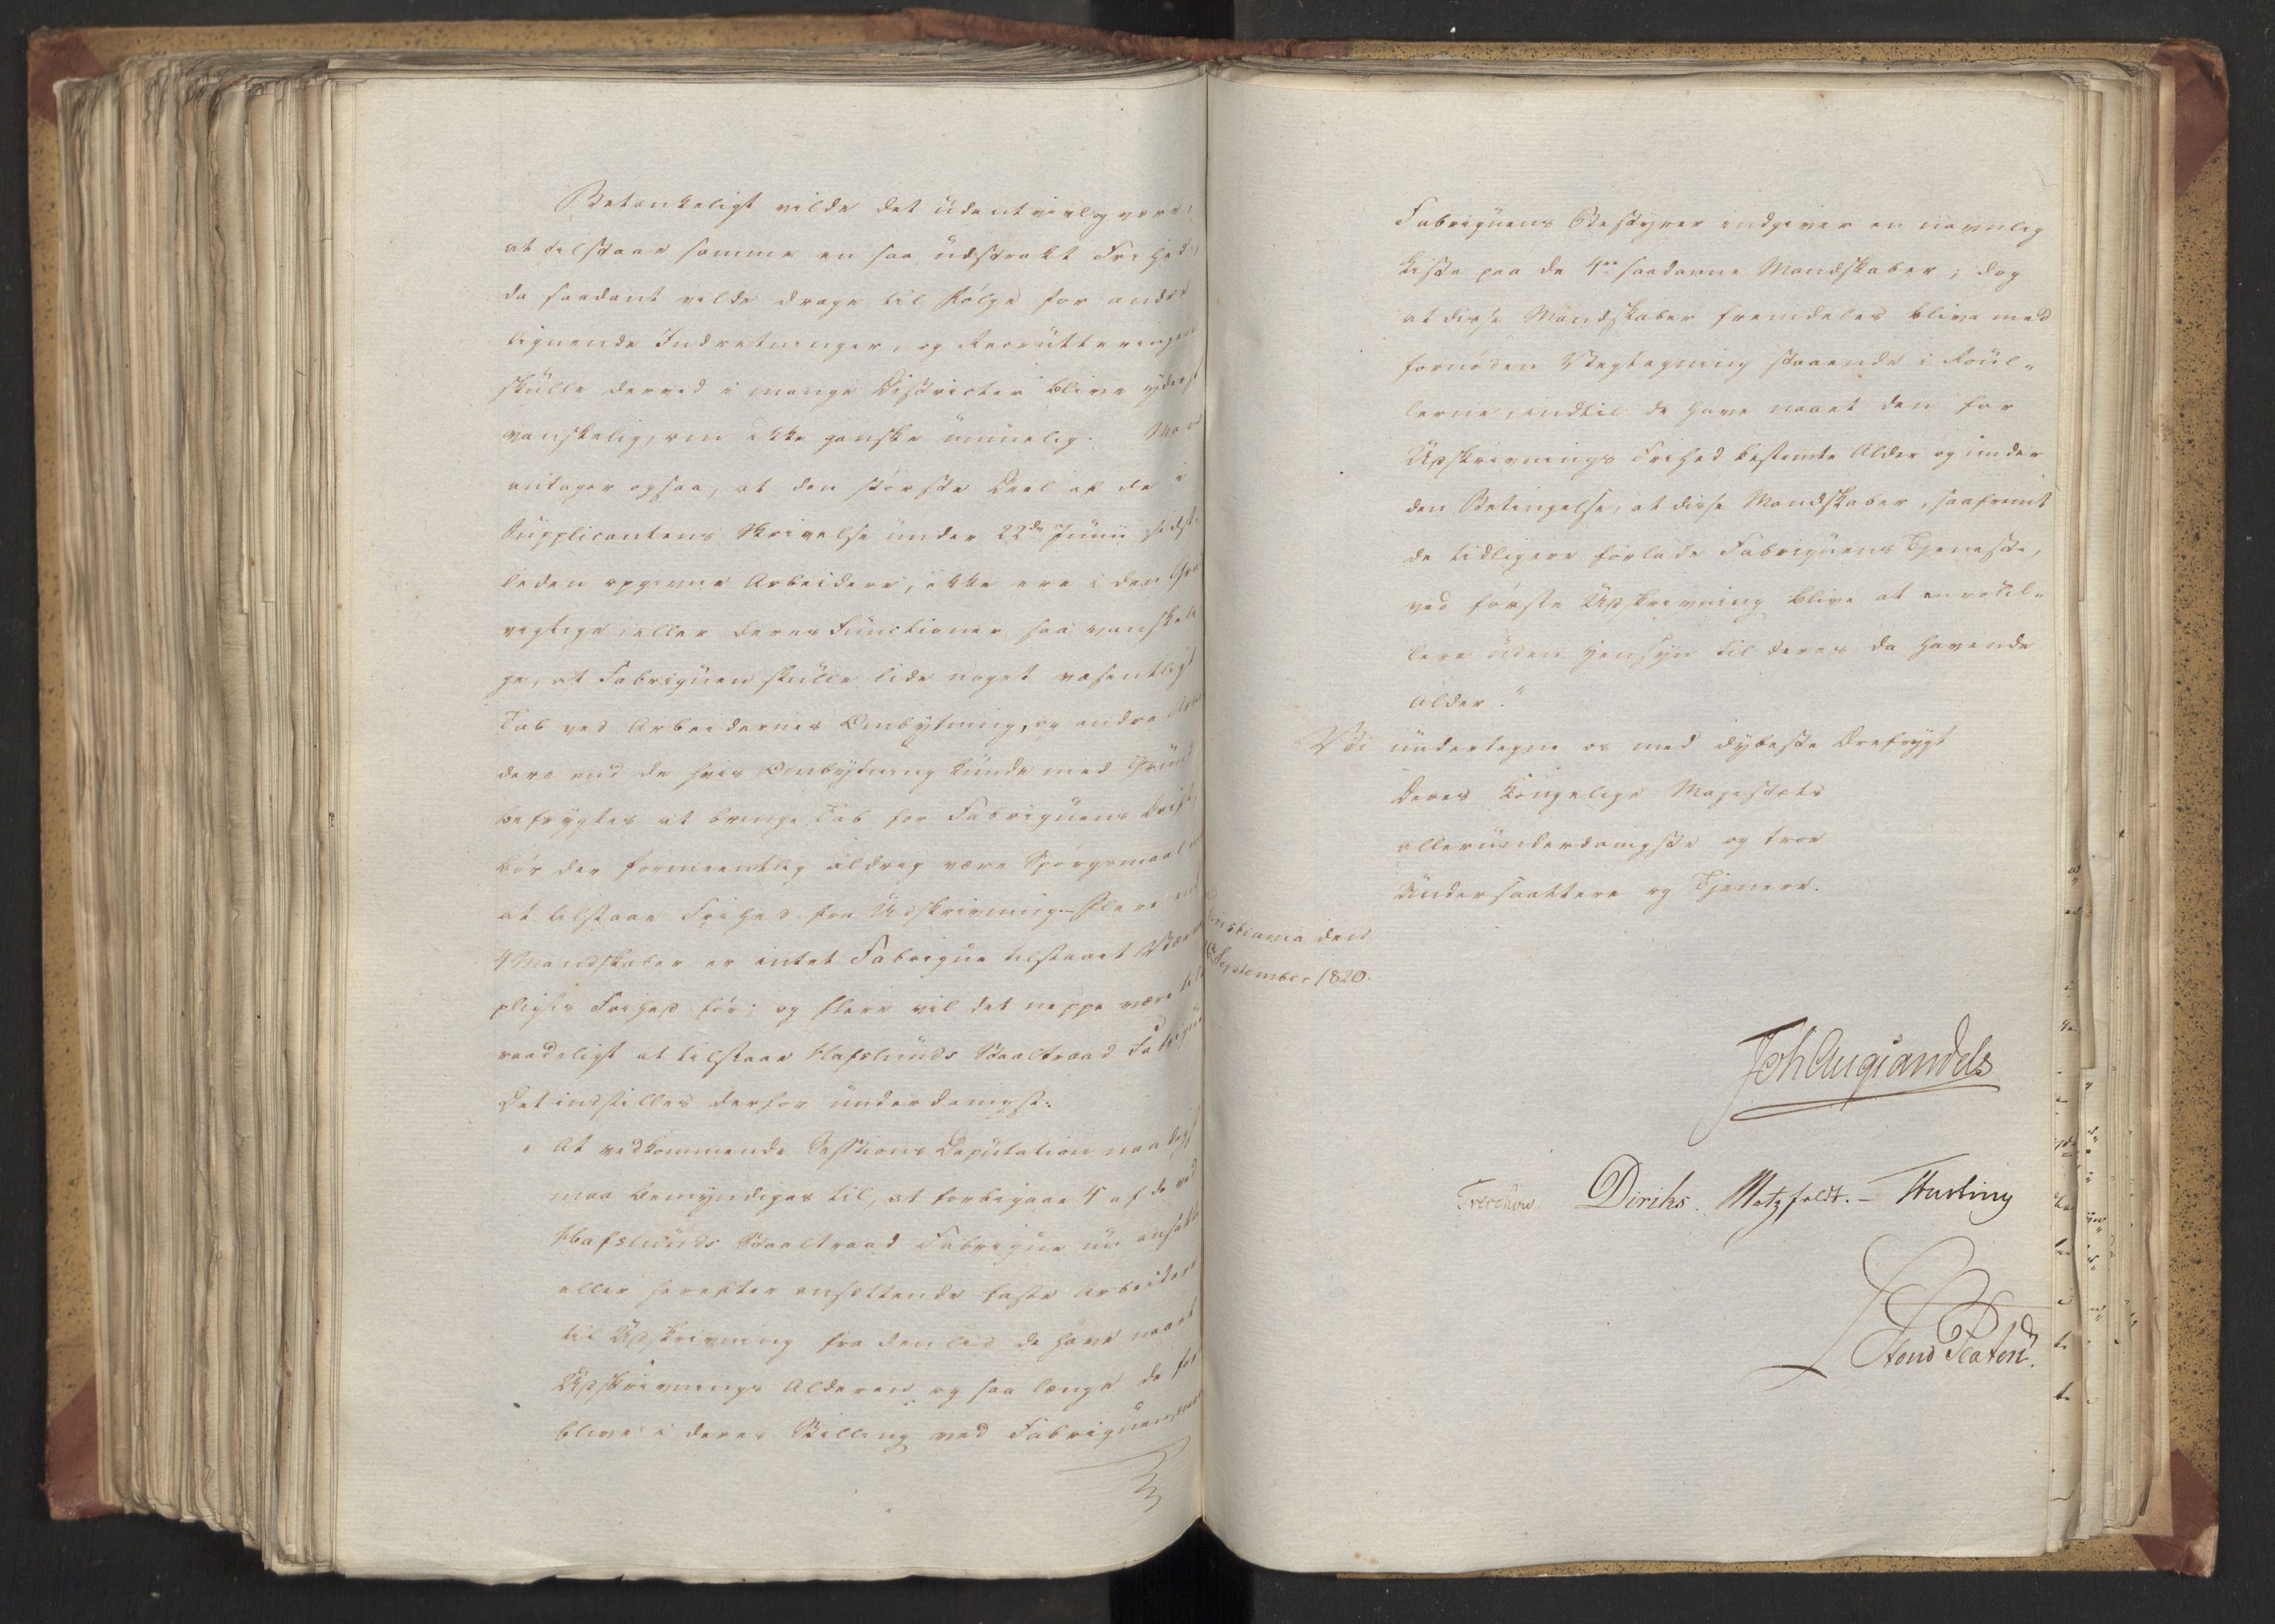 Betænkeligt vilde det udentvivl og være,
at tilstaae samme en saa udstrakt Frihed,
da saadant vilde drage til Følge for andre
lignende Indretninger, og Recrutteringen
skulle derved i mange Districter blive yderst
vanskelig, om ikke ganske umuelig. Man
antager ogsaa, at den største Deel af de i
Supplicantens Skrivelse under 22de Junii sidst-
leden opgivne Arbeidere, ikke ere i den
vigtige eller deres Functioner saa vanskeli
ge, at Fabriquen skulle lide noget væsentligt
Tab ved Arbeidernes Ombytning, og andre Arbei
dere end de hvis Ombytning kunde med Grund
befrygtes at bringe Tab for Fabriquens Drift,
bør der formeentlig aldrig være Spørgsmaal om
at tilstaae Frihed fra Udskrivning. Flere end
4 Mandskaber er intet Fabrique tilstaaet Værne
pligts Frihed for; og flere vil det neppe være til
raadeligt at tilstaae Hafslunds Staaltraad Fabrique
Det indstilles derfor underdanigst:
" At vedkommende Sessions Deputation naadigst
maa bemyndiges til, at forbigaae 4 af de ved
Hafslunds Staaltraad Fabrique nu ansatte
eller herefter ansættende faste Arbeidere
til Udskrivning fra den Tid de have naaet
Udskrivnings Alderen og saa længe de for
blive i deres Stilling ved Fabriquen, naar
Fabriquens Bestyrer indgiver en navnlig
Liste paa de 4re saadanne Mandskaber; dog
at disse Mandskaber fremdeles blive med
fornøden Vegtegning staaende i Roul-
lerne, indtil de have naaet den for
Udskrivnings Frihed bestemte Alder og under
den Betingelse, at disse Mandskaber, saafremt
de tidligere forlade Fabriquens Tjeneste,
ved første Udskrivning blive at enroul-
lere uden Hensyn til deres da havende
Alder."
Vi undertegne os med dybeste Ærefrygt
Deres Kongelige Majestæts
allerunderdanigste og troe
Undersaattere og Tjenere.
Christiania den
September 1820.
Joh Aug Sandels
Treschow Diriks. Motzfeldt. - Hasting